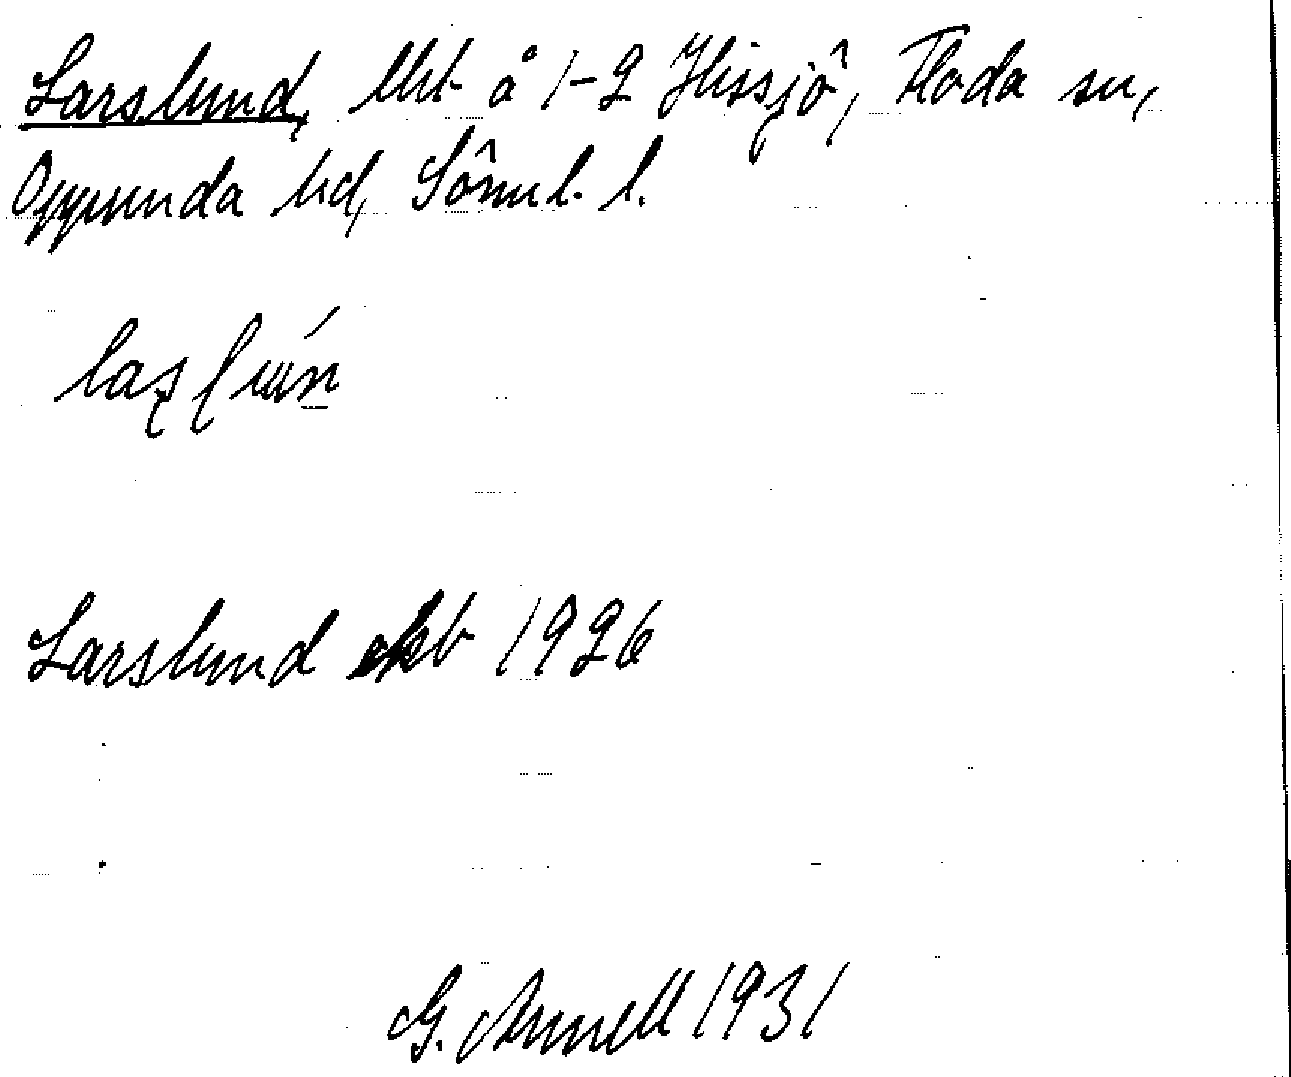 Larslund, lht å 1-2 Hissjö, Floda sn,
Oppunda hd, Sörml. l.
Larslund ekb 1926
G. Arnell 1931